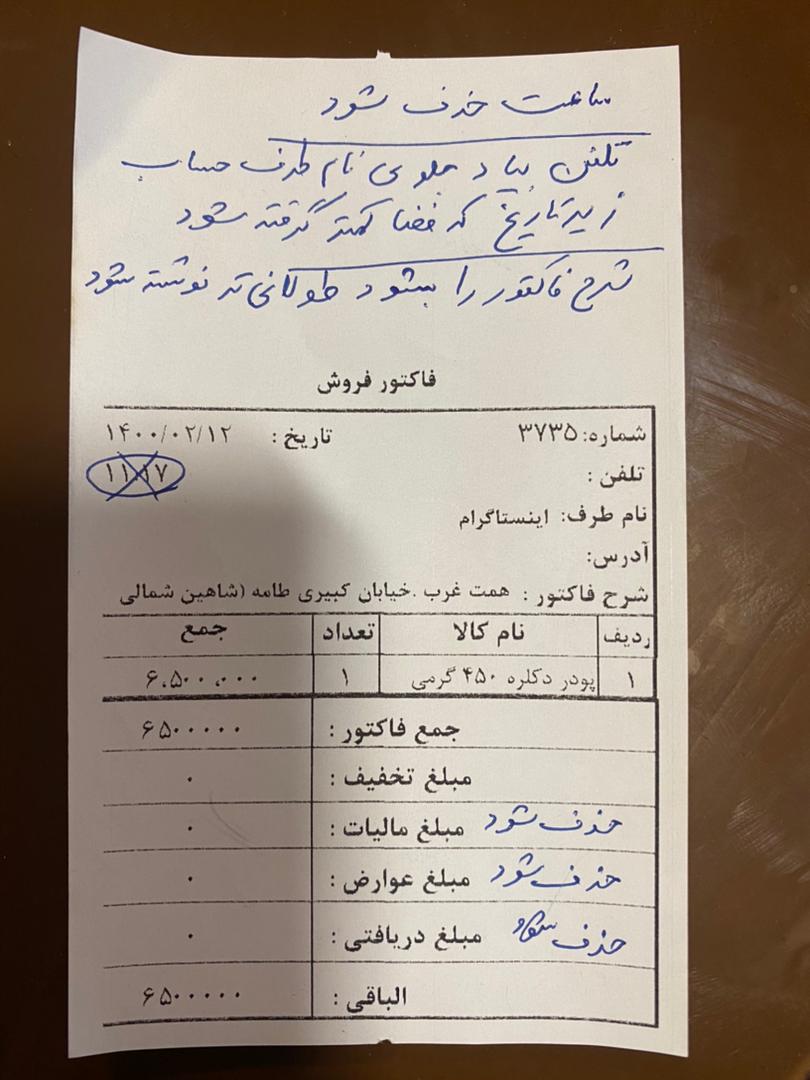 ساعت حذف شود
تلفن بیاد جلوی نام طرف حساب
زیر تاریخ که فضا کمتر گرفته شود
شرح فاکتور را بشود طولانی تر نوشته شود
فاکتور فروش
شماره: ۳۷۳۵ تاریخ : ۱۴۰۰/۰۲/۱۲
تلفن : ۱۱:۱۷
نام طرف: اینستاگرام
آدرس:
شرح فاکتور : همت غرب .خیابان کبیری طامه (شاهین شمالی
ردیف نام کالا تعداد جمع
۱ پودر دکلره ۴۵۰ گرمی ۱ ۶,۵۰۰,۰۰۰
جمع فاکتور : ۶۵۰۰۰۰۰
مبلغ تخفیف : ۰
حذف شود مبلغ مالیات : ۰
حذف شود مبلغ عوارض : ۰
حذف شود مبلغ دریافتی : ۰
الباقی : ۶۵۰۰۰۰۰